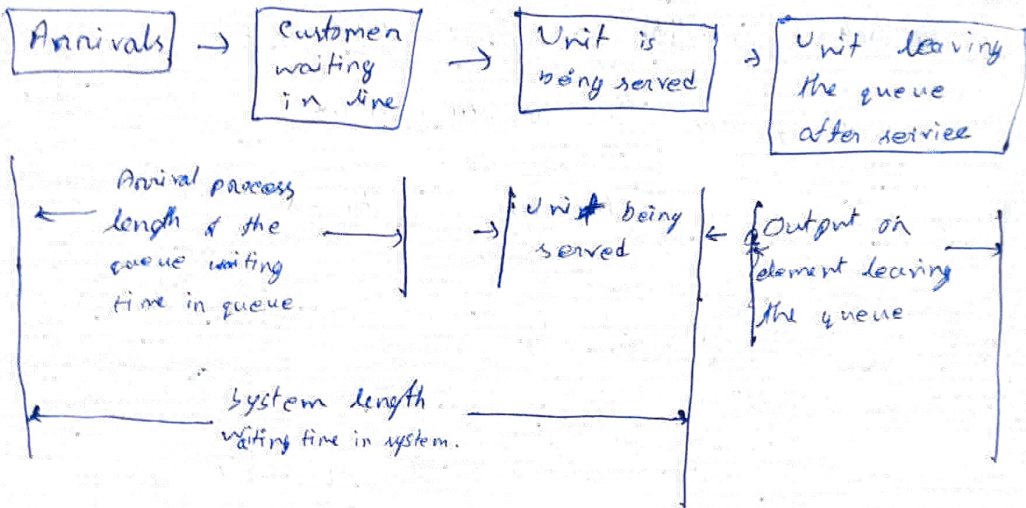 Arrivals
Customer
waiting
in line
Unit is
being served
Unit leaving
the queue
after service
Arrival process
length & the
queue waiting
time in queue.
Unit being
served
Output or
element leaving
the queue
System length
Waiting time in system.